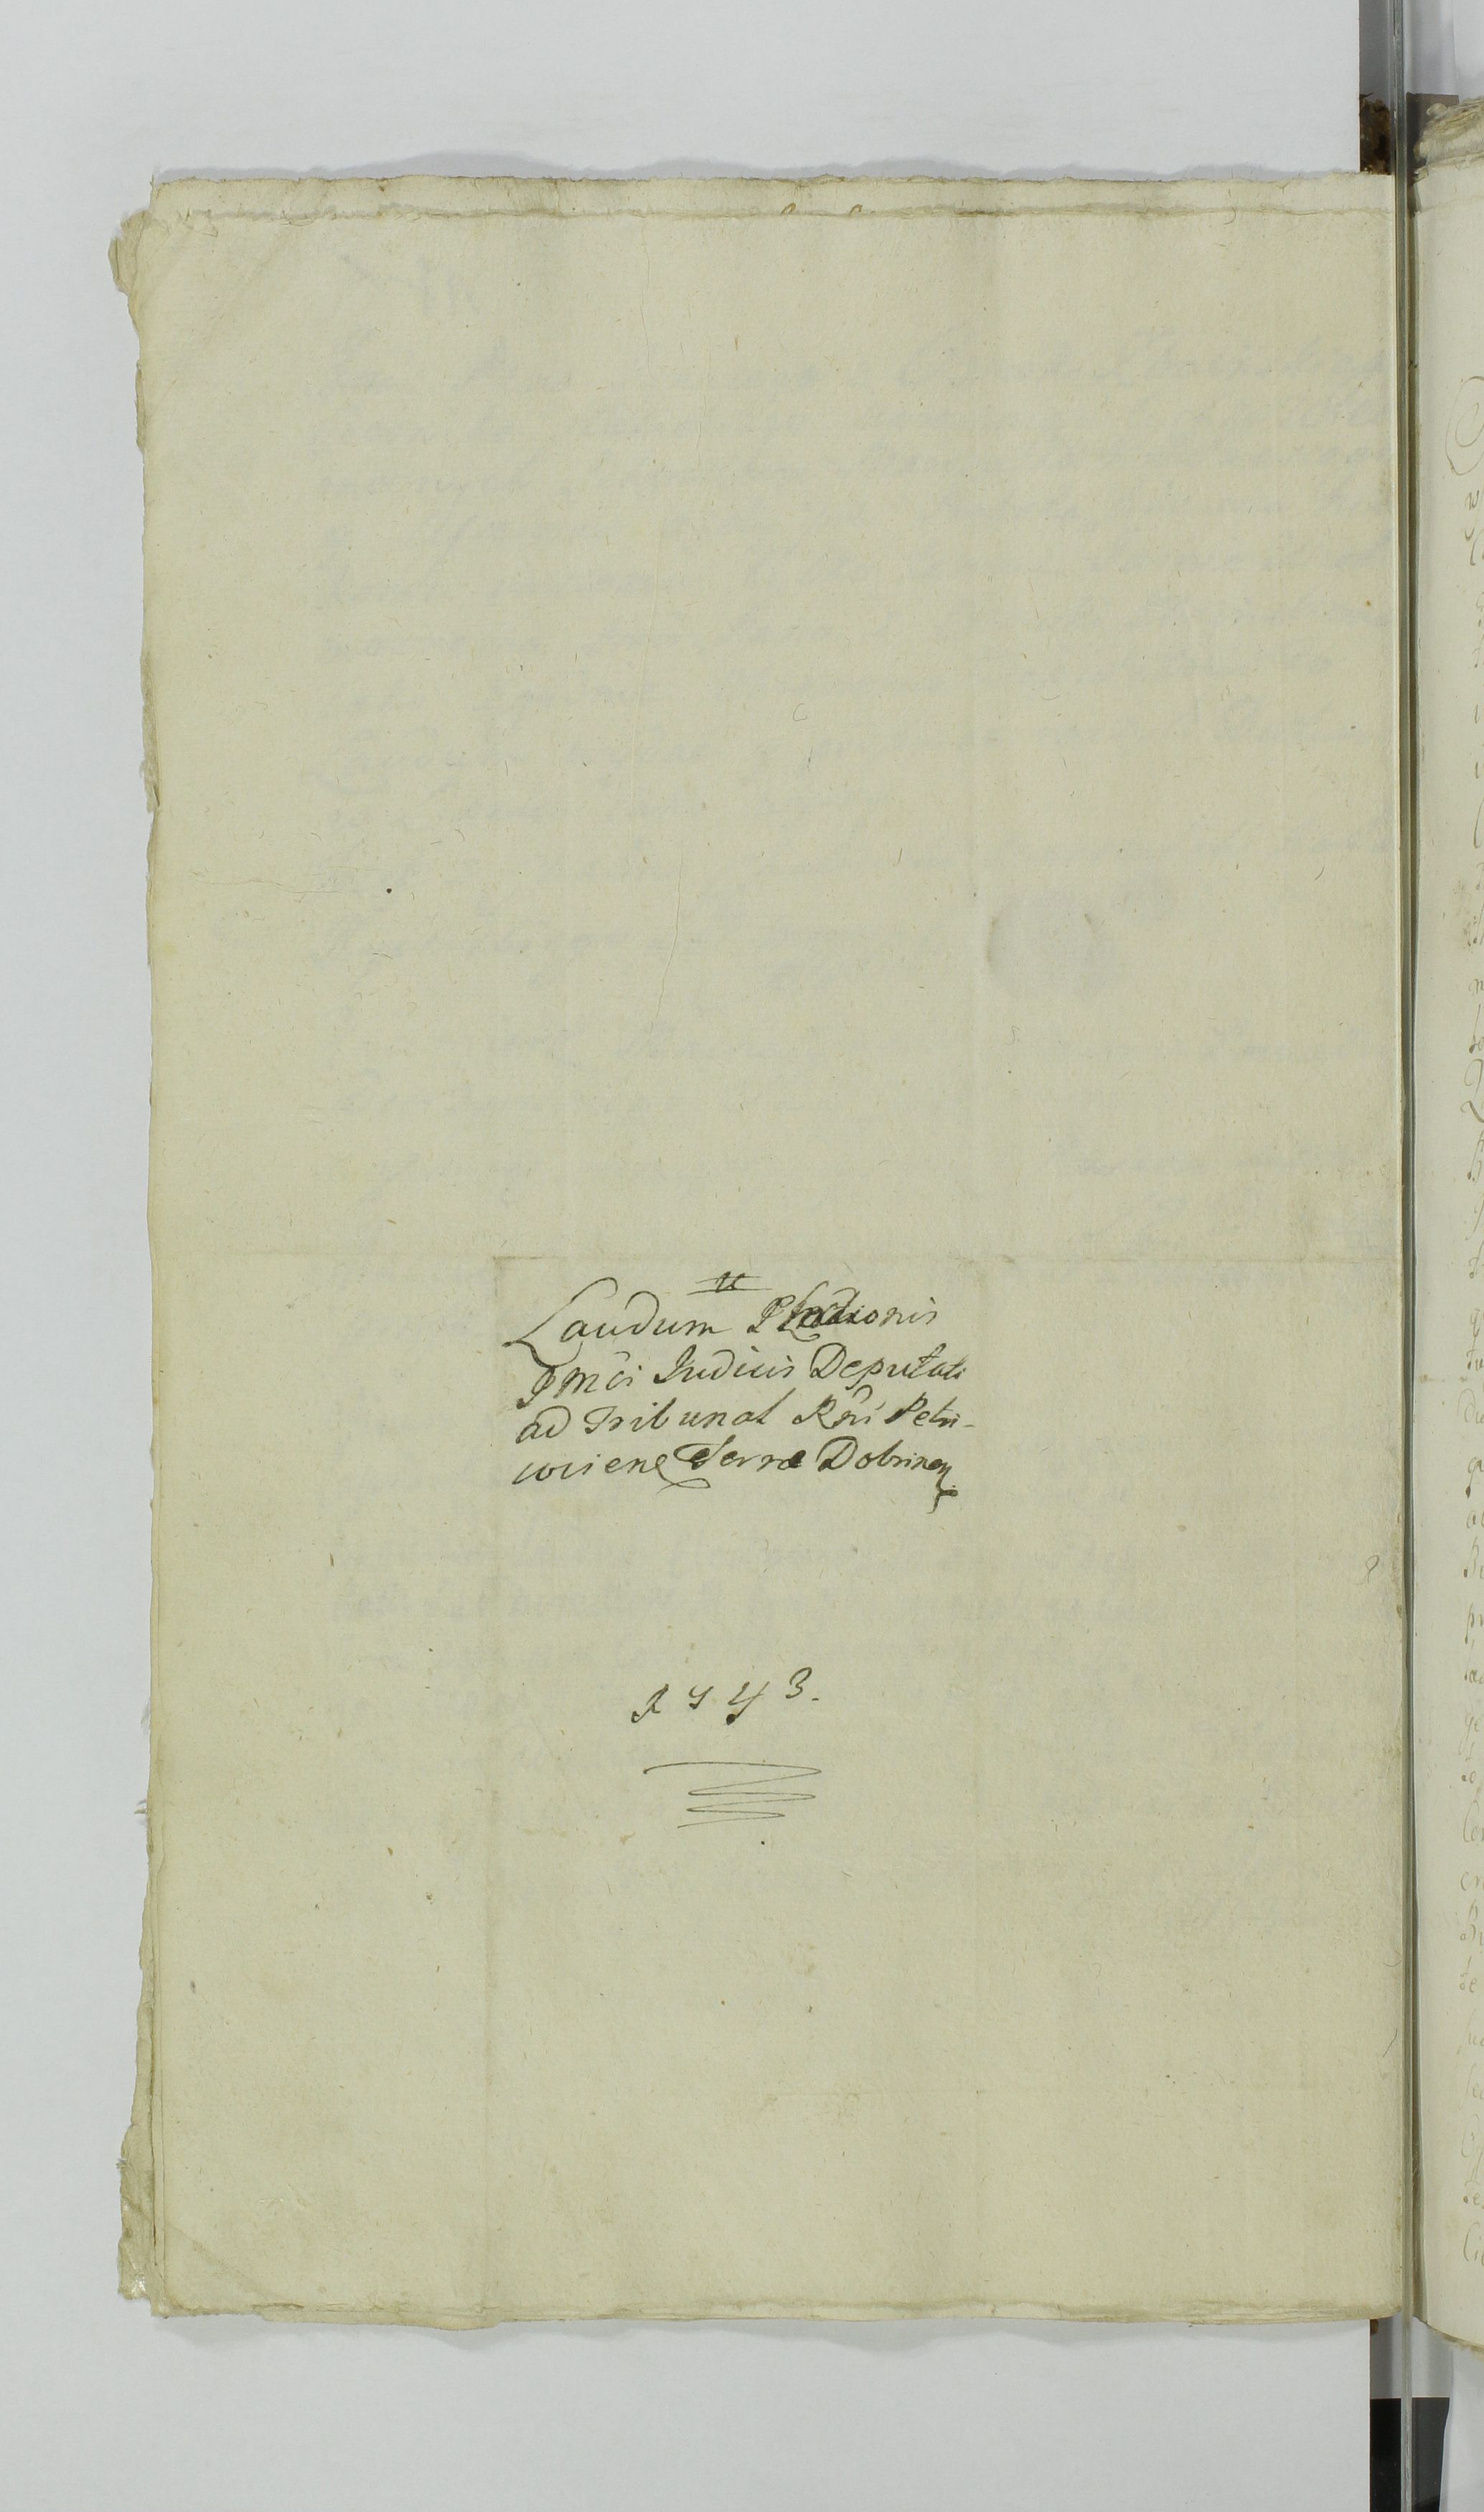 Laudum Electionis
Imci Judicis Deputati
ad Tribunal Rni Petri-
covien Terræ Dobrinen
1743.